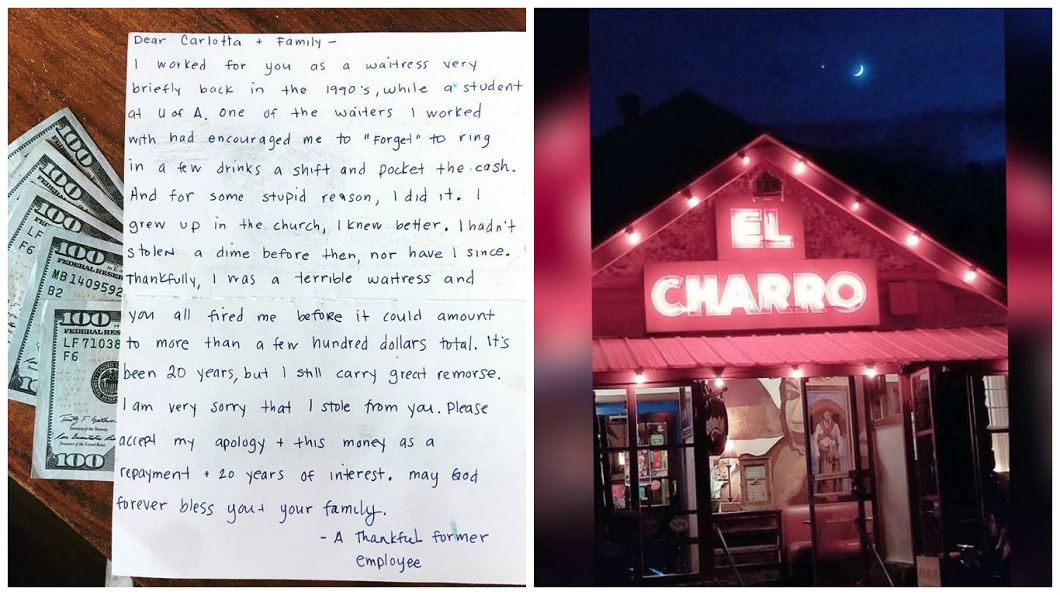 Dear Carlotta + Family -
I worked for you as a waitress very
briefly back in the 1990's, while a student
at U of A. One of the waiters I worked
with had encouraged me to "Forget" to ring
in a few drinks a shift and pocket the cash.
And for some stupid reason, I did it. I
grew up in the church, I knew better. I hadn't
stolen a dime before then, nor have I since.
Thankfully, I was a terrible waitress and
you all fired me before it could amount
to more than a few hundred dollars total. It's
been 20 years, but I still carry great remorse.
I am very sorry that I stole from you. Please
accept my apology + this money as a
repayment + 20 years of interest. may God
forever bless you + your family.
- A Thankful former
employee
100
100
100
LF
F6
100
FEDERAL RESER
MB 1409592
B2
100
FEDERAL RES
LF 71038
F6
100
EL
CHARRO